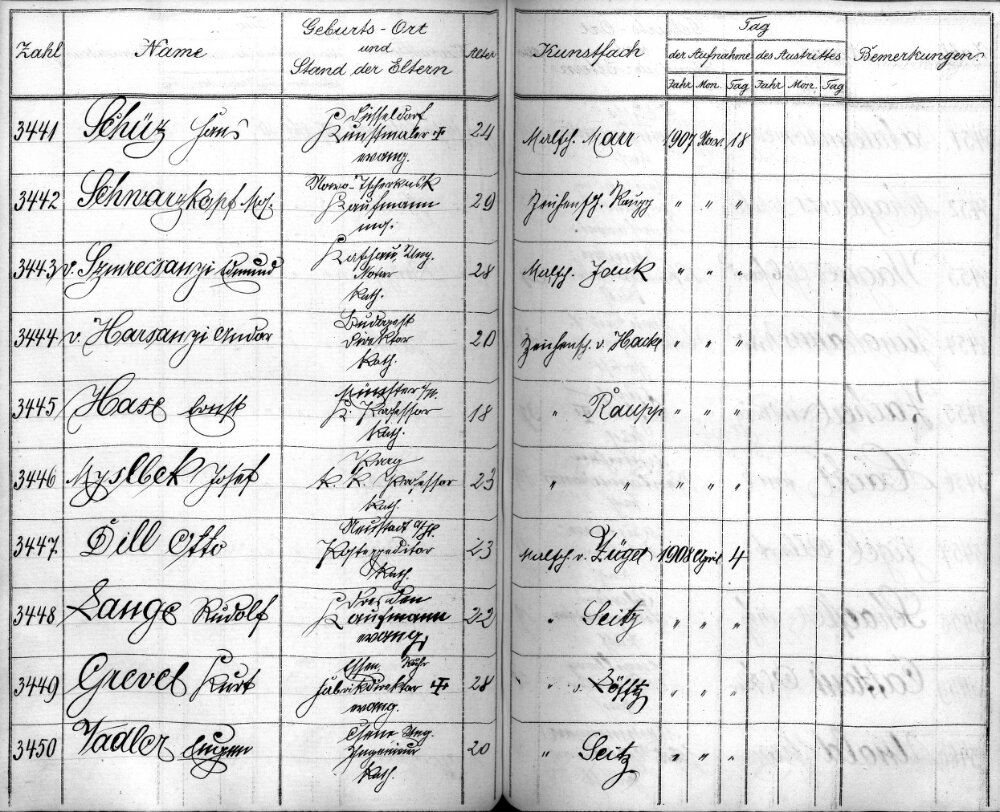 Zahl Name Geburts-Ort und Stand der Eltern Alter Kunstfach Tag der Aufnahme des Austrittes Bemerkungen.
Jahr Mon. Tag Jahr Mon. Tag
Düsseldorf
3441 Schüz Hans Kunstmaler ✝ 24 Malsch. Marr 1907 Nov. 18
evang.
Nowo-Tscherkask
3442 Schwarzkopf Kaufmann 29 Zeichensch. Raupp " " "
mos.
Kaschau, Ung.
3443 v. Szmrecsanyi Edmund Notar 28 Malsch. Jank " " "
kath.
Budapest
3444 v. Harsanyi Andor Direktor 20 Zeichensch. v. Hackl " " "
kath.
Münster i/W.
3445 Hase Ernst Professor 18 " Raupp " " "
kath.
Prag
3446 Myslbek Josef k. k. Professor 23 " " " " "
kath.
Neustadt a/H.
3447 Dill Otto Postexpeditor 23 Malsch. v. Zügel 1908 April 4
kath.
Dresden
3448 Lange Rudolf Kaufmann 22 " Seitz " " "
evang.
Essen, Ruhr
3449 Grevel Kurt Fabrikdirektor ✝ 28 " v. Löfftz " " "
evang.
Ung.
3450 Vadler Eugen Ingenieur 20 " Seitz " " "
kath.